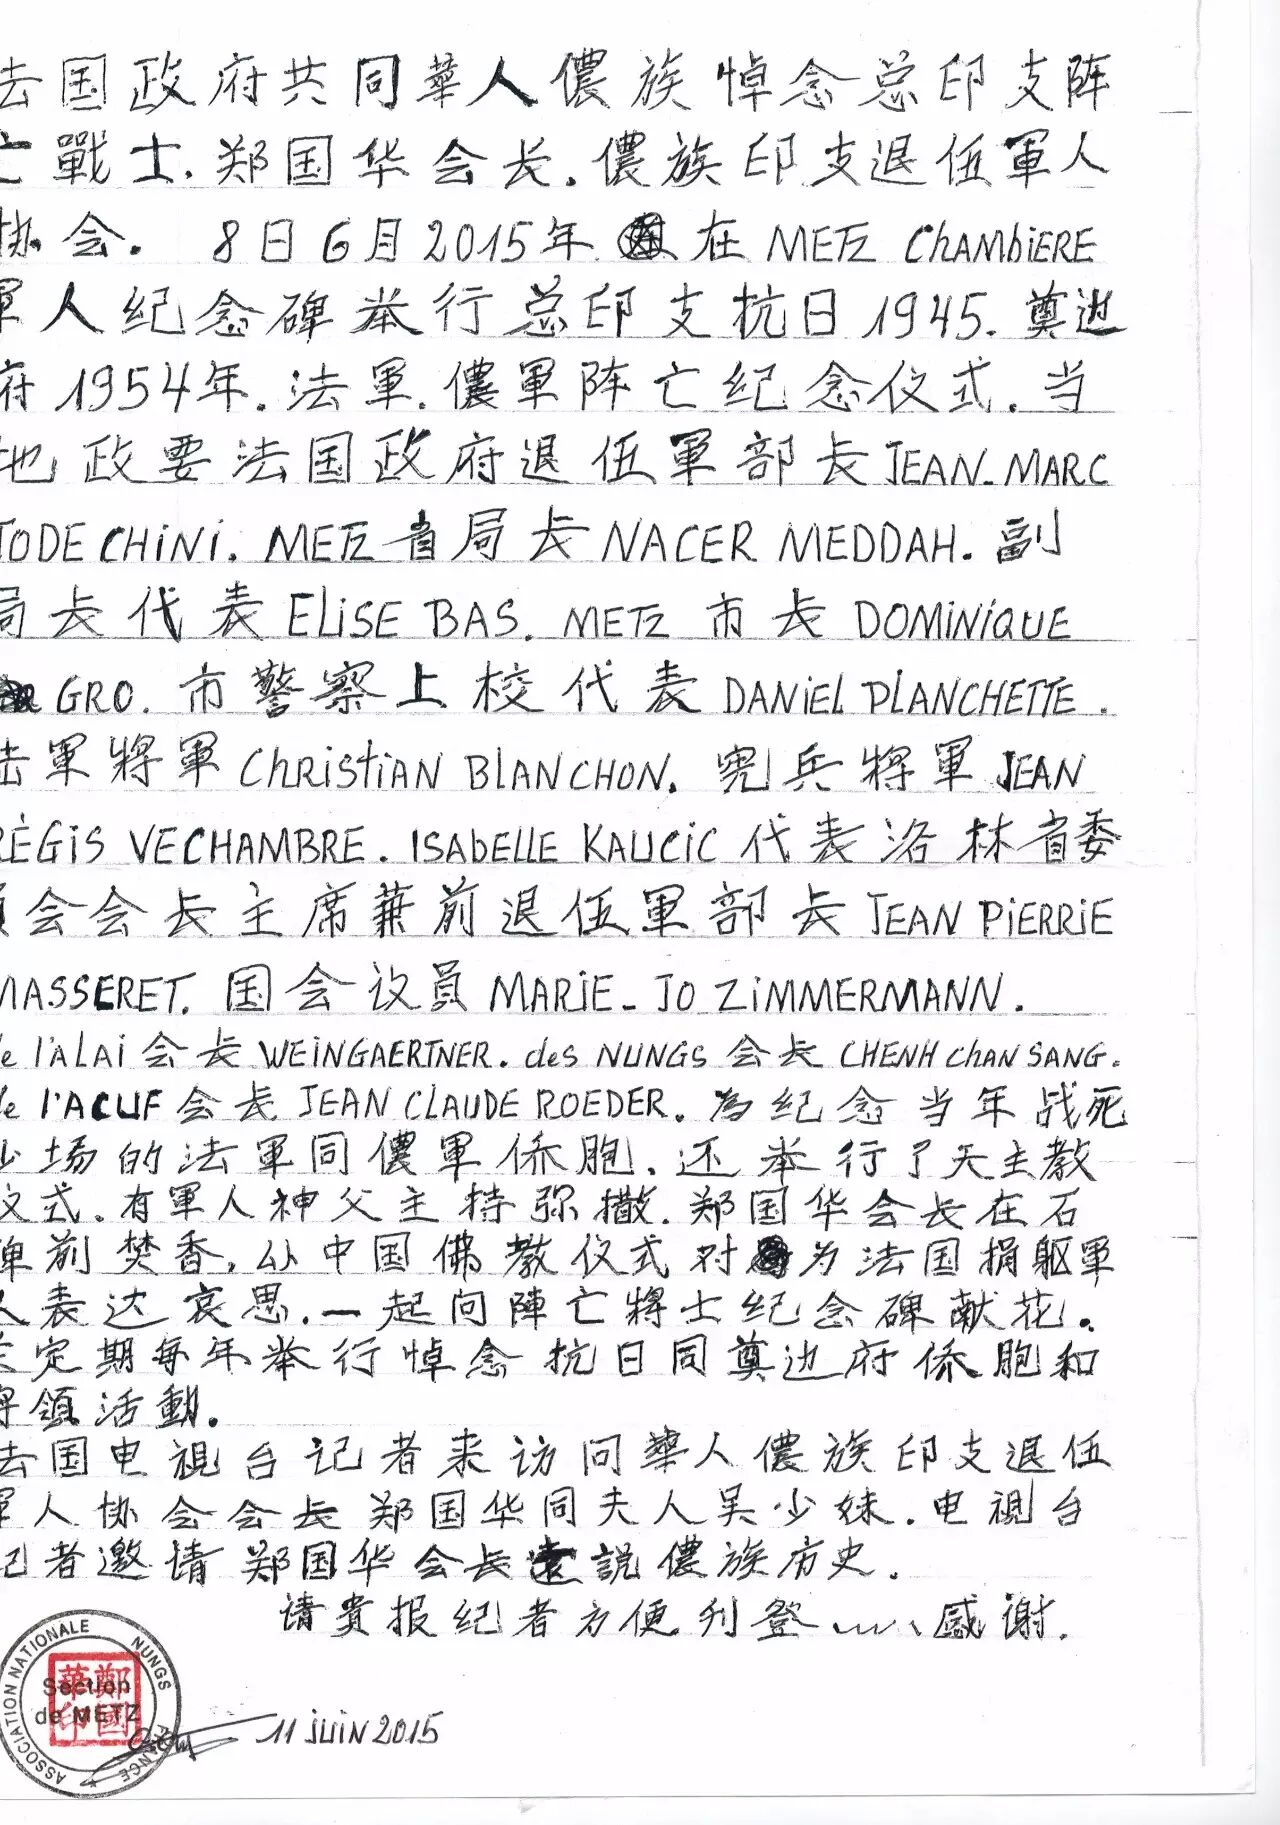 法国政府共同華人儂族悼念总印支阵
亡戰士.郑国华会长.儂族印支退伍軍人
协会. 8日6月2015年 在METZ ChAMbiERE
軍人纪念碑举行总印支抗日1945.奠边
府1954年.法軍.儂軍阵亡纪念仪式.当
地政要法国政府退伍軍部长JEAN-MARC
TODECHiNi.METZ省局长NACER MEDDAH.副
局长代表ELiSE BAS.METZ市长DOMiNiQUE
GRO.市警察上校代表DANiEL PLANCHETTE.
陆軍將軍ChRiStiAN BLANCHON.宪兵將軍JEAN
RÉGiS VECHAMBRE.ISAbELLE KAUCiC代表洛林省委
員会会长主席兼前退伍軍部长JEAN PiERRiE
MASSERET.国会议員MARiE-JO ZiMMERMANN.
de l'ALAi会长WEiNGAERTNER.des NUNGS会长CHENH ChAN SANG.
de l'ACUF会长JEAN CLAUDE ROEDER.為纪念当年战死
沙场的法軍同儂軍侨胞.还举行了天主教
仪式.有軍人神父主持弥撒.郑国华会长在石
碑前焚香,以中国佛教仪式对为法国捐躯軍
人表达哀思.一起向陣亡將士纪念碑献花.
法定期每年举行悼念抗日同奠边府侨胞和
將領活動.
法国电視台记者来访问華人儂族印支退伍
軍人协会会长郑国华同夫人吴少妹.电視台
记者邀请郑国华会长説儂族历史.
请貴报纪者方便刊登......感谢.
ASSOCIATION NATIONALE NUNGS FRANCE
Section
de METZ
鄭國華印
11 JUiN 2015